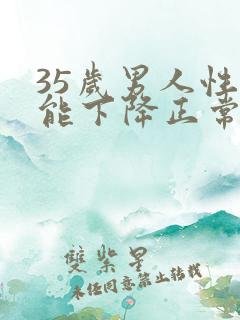 35歲男人性
能下降正常
雙紫星
未經同意禁止轉載